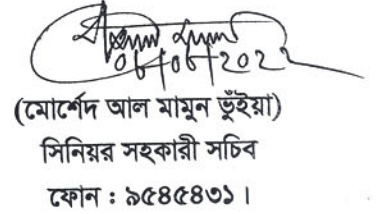 (মোর্শেদ আল মামুন ভুঁইয়া)
সিনিয়র সহকারী সচিব
ফোন : ৯৫৪৫৪৩১।